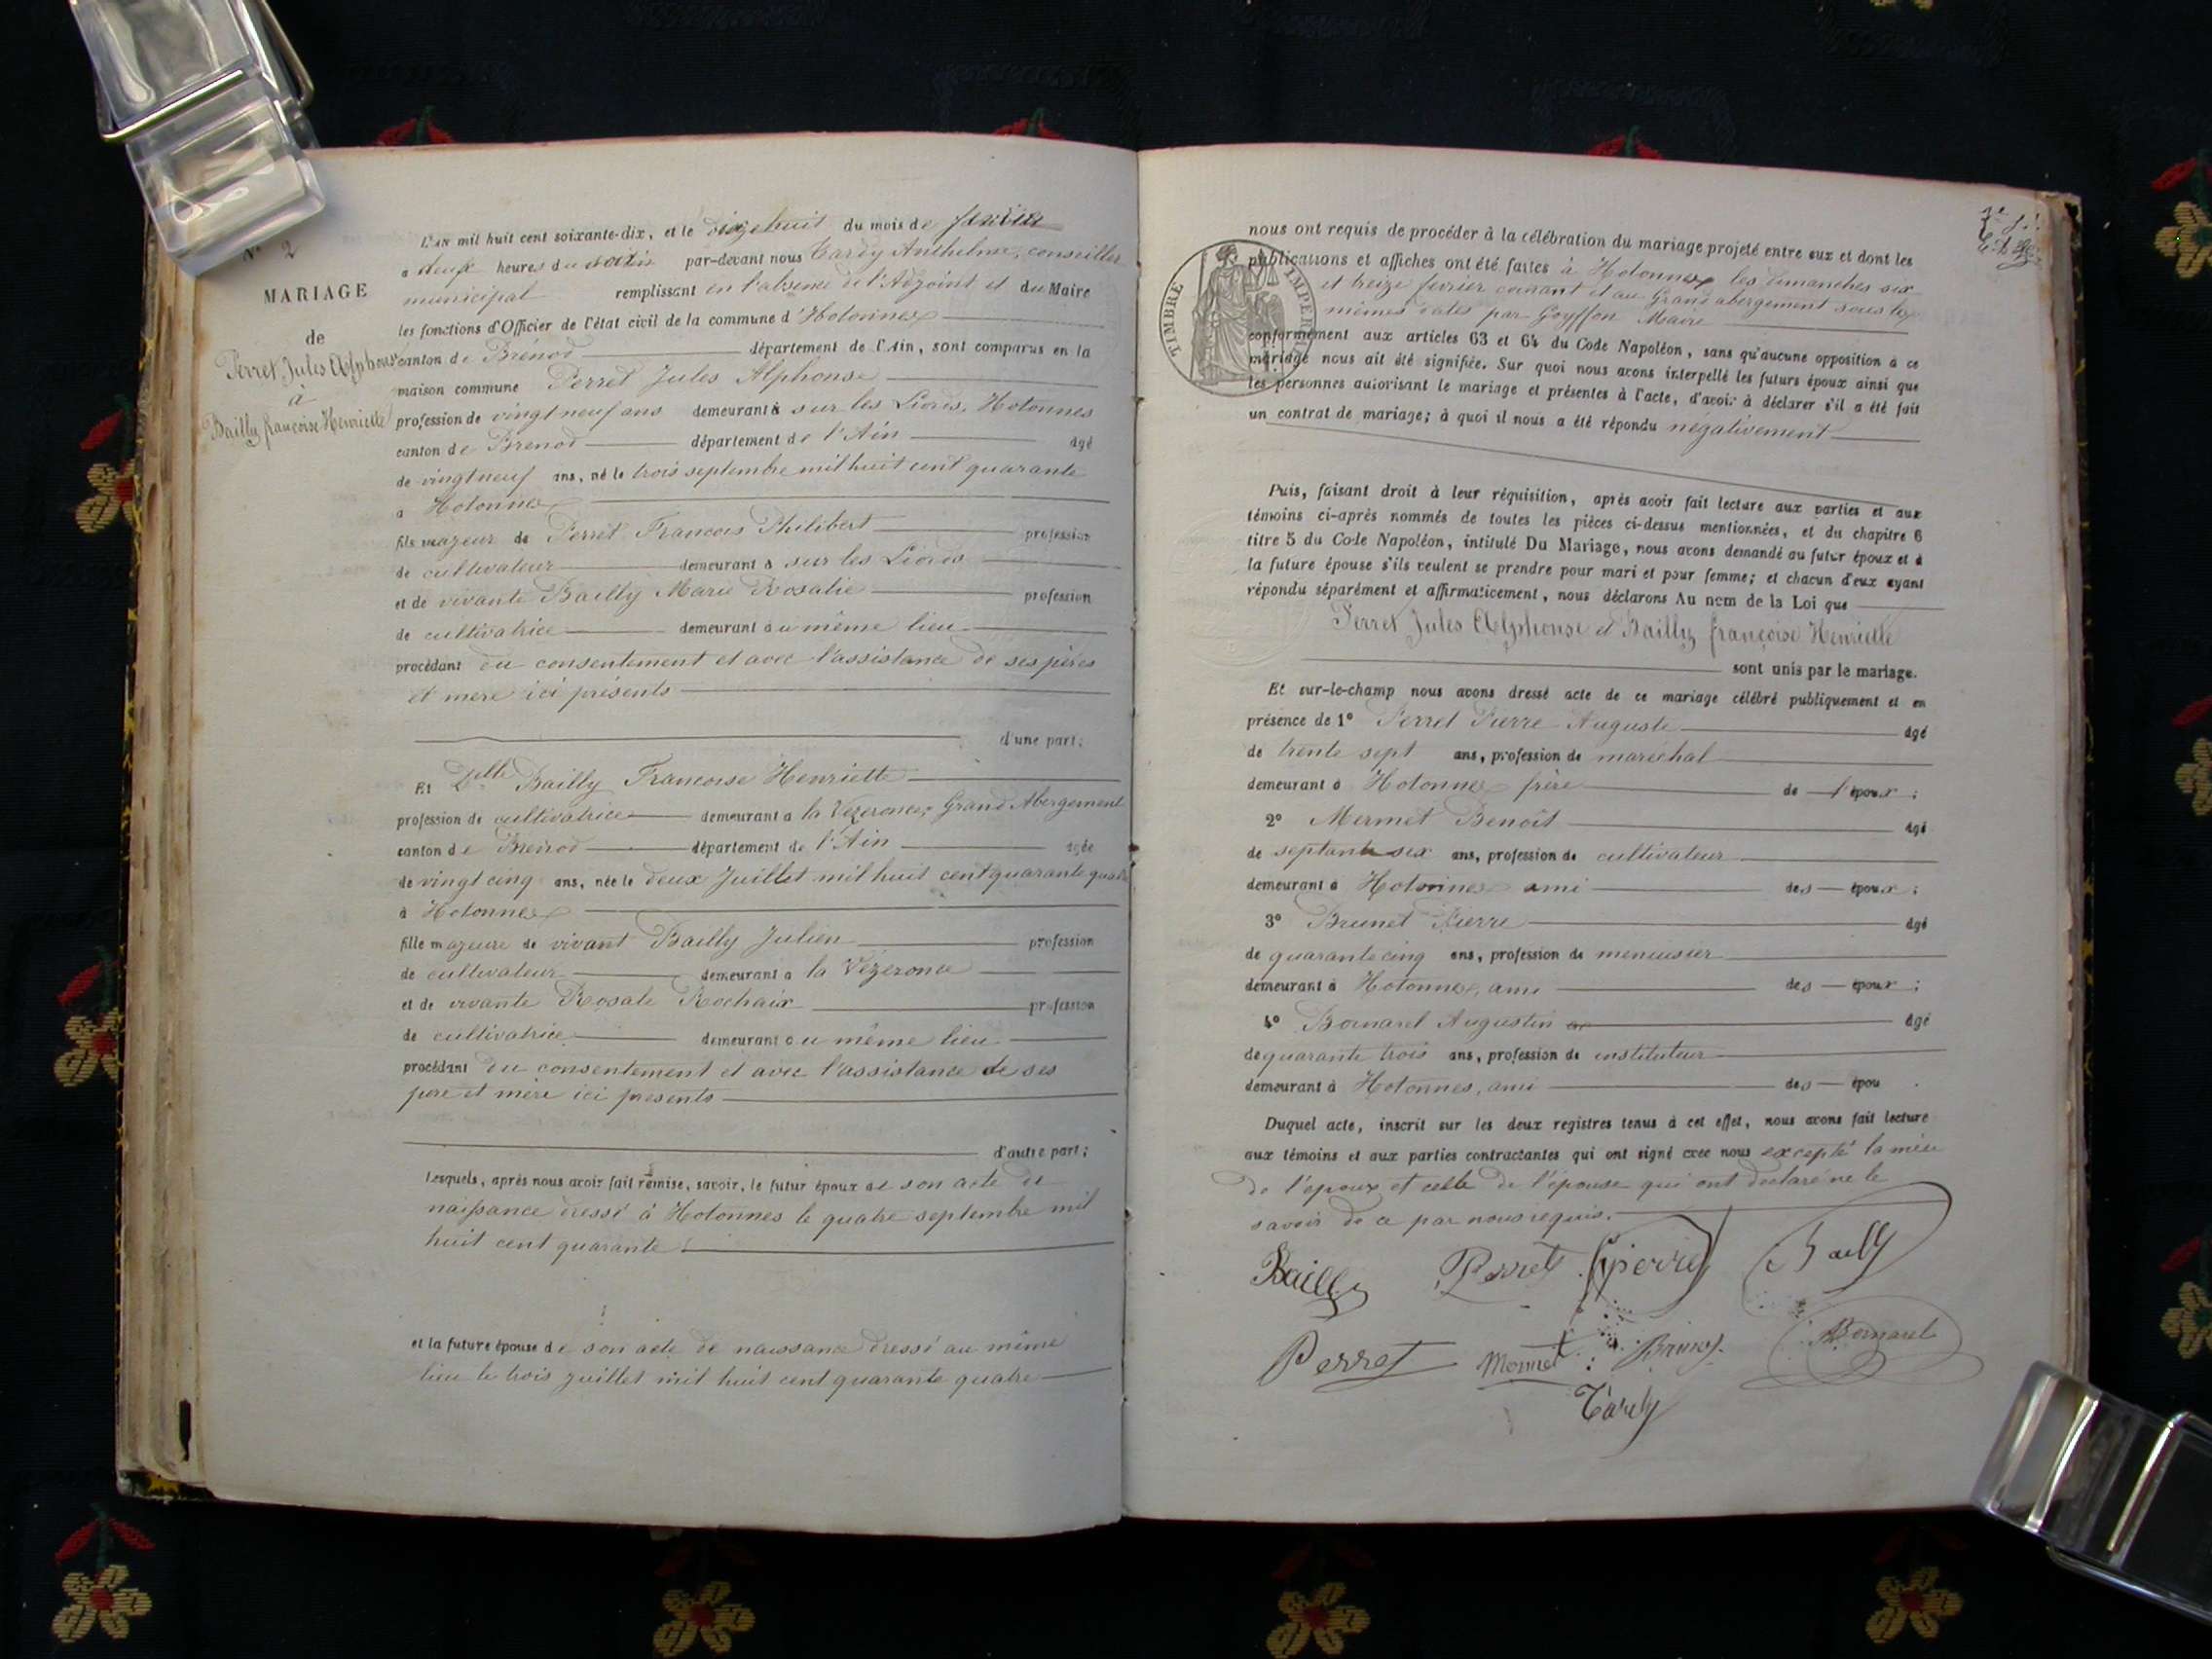 N° 2
MARIAGE
de
Perret Jules Alphonse
à
Bailly françoise Henriette
L'AN mil huit cent soixante-dix, et le dixe huit du mois de
a heures du par-devant nous Tardy Anthelme, conseiller
municipal remplissant en l'absence de l'Adjoint et du Maire
les fonctions d'Officier de l'état civil de la commune d'Hotonnes
canton de Brénod département de l'Ain, sont comparus en la
maison commune Perret Jules Alphonse
profession de vingt neuf ans demeurant à sur les Lioves, Hotonnes
canton de Brenod département de l'Ain agé
de vingt neuf ans, né le trois septembre mil huit cent quarante
a Hotonnes
fils majeur de Perret Francois Philibert profession
de cultivateur demeurant à sur les
et de vivante Bailly Marie Rosalie profession
de cultivatrice demeurant au même lieu
procédant du consentement et avec l'assistance de ses pères
et mere ici présents
d'une part;
Et Delle Bailly Francoise Henriette
profession de cultivatrice demeurant a la Vezeronce, Grand Abergement
canton de Brénod département de l'Ain agée
de vingt cinq ans, née le deux Juillet mil huit cent quarante quatre
à Hotonnes
fille majeure de vivant Bailly Julien profession
de cultivateur demeurant a la Vézeronce
et de vivante Rosale Rochaix profession
de cultivatrice demeurant au même lieu
procédant du consentement et avec l'assistance de ses
pere et mère ici presents
d'autre part;
Lesquels, après nous avoir fait remise, savoir, le futur époux de son acte de
naissance dressé à Hotonnes le quatre septembre mil
huit cent quarante
et la future épouse de son acte de naissance dressé au même
lieu le trois juillet mil huit cent quarante quatre
TIMBRE IMPERIAL
nous ont requis de procéder à la célébration du mariage projeté entre eux et dont les
publications et affiches ont été faites à Hotonnes les dimanches six
et treize fevrier courant et au Grand abergement sous les
mêmes dates par Goyffon Maire
conformément aux articles 63 et 64 du Code Napoléon, sans qu'aucune opposition à ce
mariage nous ait été signifiée. Sur quoi nous avons interpellé les futurs époux ainsi que
les personnes autorisant le mariage et présentes à l'acte, d'avoir à déclarer s'il a été fait
un contrat de mariage; à quoi il nous a été répondu negativement
Puis, faisant droit à leur réquisition, après avoir fait lecture aux parties et aux
témoins ci-après nommés de toutes les pièces ci-dessus mentionnées, et du chapitre 6
titre 5 du Code Napoléon, intitulé Du Mariage, nous avons demandé au futur époux et à
la future épouse s'ils veulent se prendre pour mari et pour femme; et chacun d'eux ayant
répondu séparément et affirmativement, nous déclarons Au nom de la Loi que
Perret Jules Alphonse et Bailly françoise Henriette
sont unis par le mariage.
Et sur-le-champ nous avons dressé acte de ce mariage célébré publiquement et en
présence de 1° Perret Pierre Auguste agé
de trente sept ans, profession de maréchal
demeurant à Hotonnes frère de l'époux;
2° Mermet Benoît agé
de septante six ans, profession de cultivateur
demeurant à Hotonnes ami des époux;
3° Brunet Pierre agé
de quarante cinq ans, profession de menuisier
demeurant à Hotonnes, ami des époux;
4° Bornarel Augustin agé
de quarante trois ans, profession de instituteur
demeurant à Hotonnes, ami des épou
Duquel acte, inscrit sur les deux registres tenus à cet effet, nous avons fait lecture
aux témoins et aux parties contractantes qui ont signé avec nous excepté la mère
de l'époux et celle de l'épouse qui ont déclaré ne le
savoir de ce par nous requis.
Bailly Perret Bailly
Perret Brunet Bornarel
Tardy